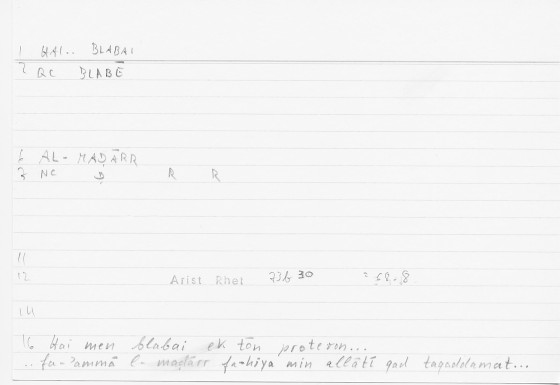 1 HAI.. BLABAI
2 QC BLABĒ
6 AL-MAḌĀRR
7 NC Ḍ R R
11
12 Arist Rhet 73b 30 =
14
16 Hai men blabai ek tōn proterōn...
.. fa-'ammā l-maḍārr fa-hiya min allātī qad taqaddamat...